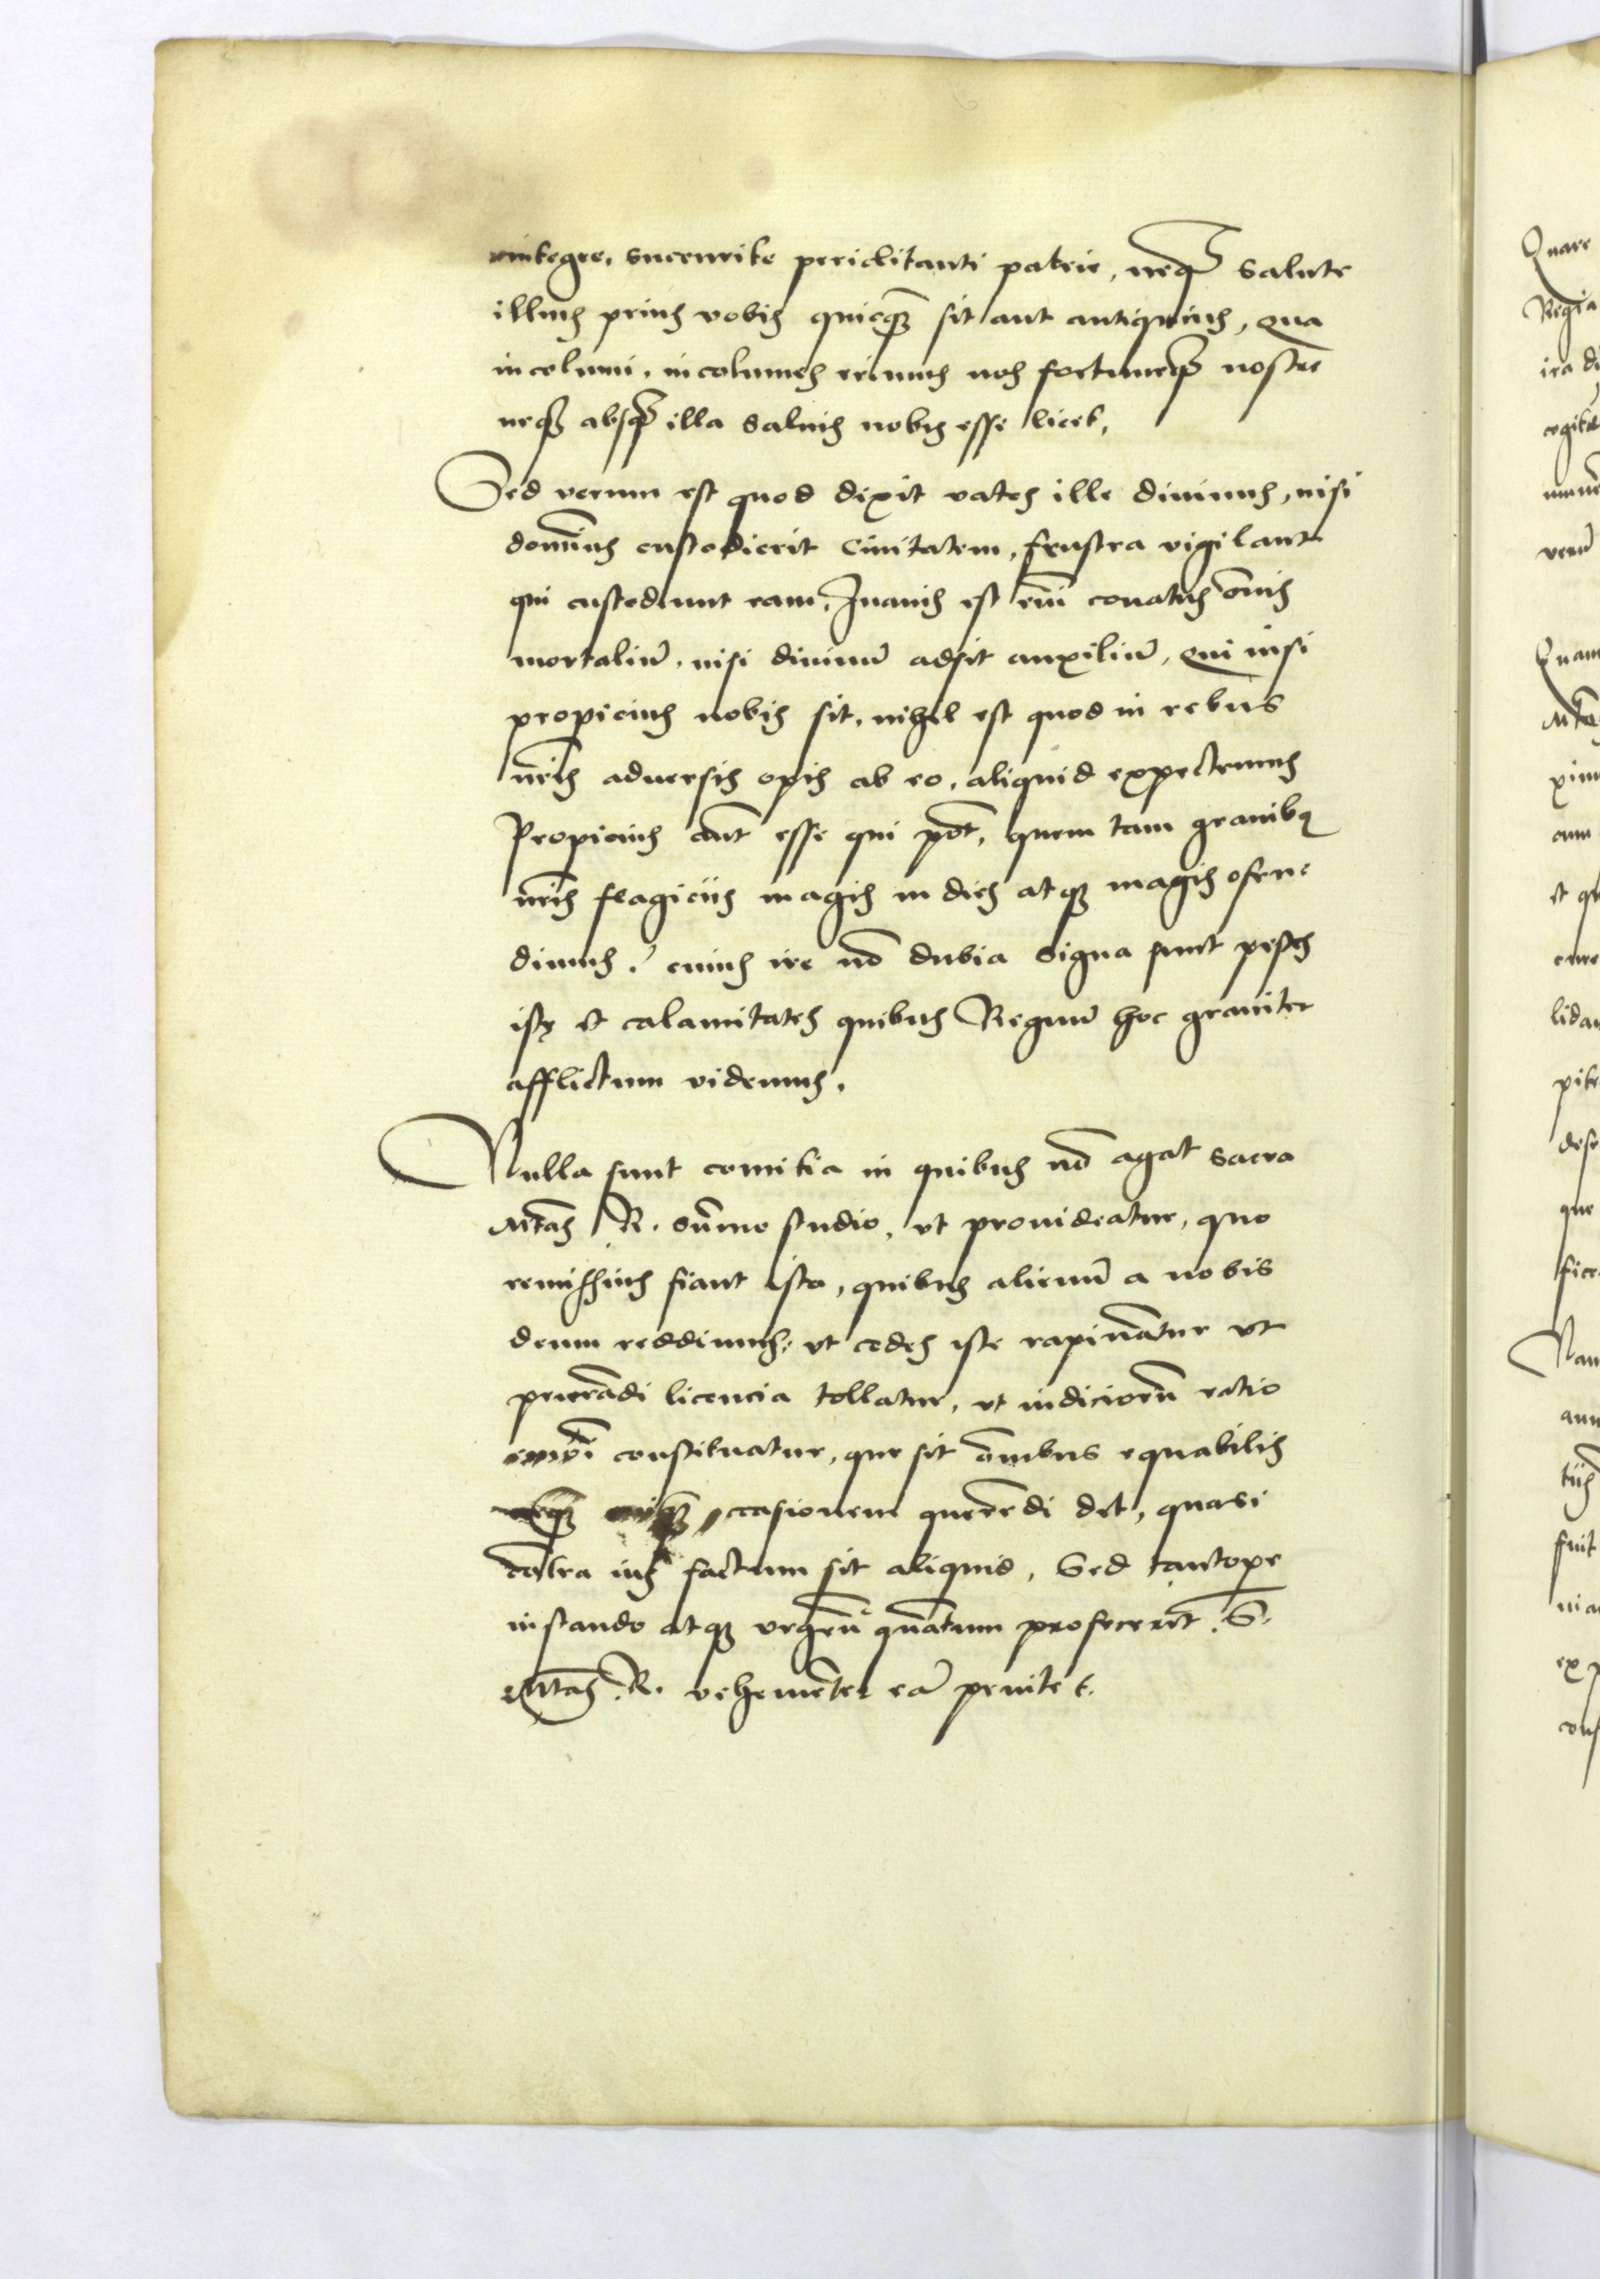 succurite periclitanti patrie, neq3 salute
illius prius vobis quicq3 sit aut antiquius, qua
incolumi, incolumes erimus nos fortuneq3 nostre
neq3 absq3 illa saluis nobis esse licet,
Sed verum est quod dixit vates ille diuinus, nisi
dominus custodierit Ciuitatem, frustra vigilant
qui custodiunt eam, Inanis est em̄ conatus ōnis
mortaliū, nisi diuinū adsit auxiliū, Qui nisi
propicius nobis sit, nihil est quod in rebus
nr̄is aduersis opis ab eo, aliquid expectemus
Propicius aūt esse qui pōt, quem tam grauibꝫ
nr̄is flagiciis magis in dies atq3 magis ofen
dimus? cuius ire nō dubia signa sunt pestes
istę et calamitates quibus Regnū hoc grauiter
afflictum videmus.
Nulla sunt comitia in quibus nō agat sacra
Mtas R. sūmo studio, ut prouideatur, quo
remissius fiant ista, quibus alienū a nobis
deum reddimus, ut cedes iste rapināture ut
peierādi licencia tollatur, ut iudiciorū ratio
constituatur, que sit ōmibus equabilis
occasionem querēdi det, quasi
cōtra ius factum sit aliquid, Sed tantope
instando atq3 vrgēn quātum profecerit S.
Mtas R. vehemēter eā penitet.
Quare
Regia